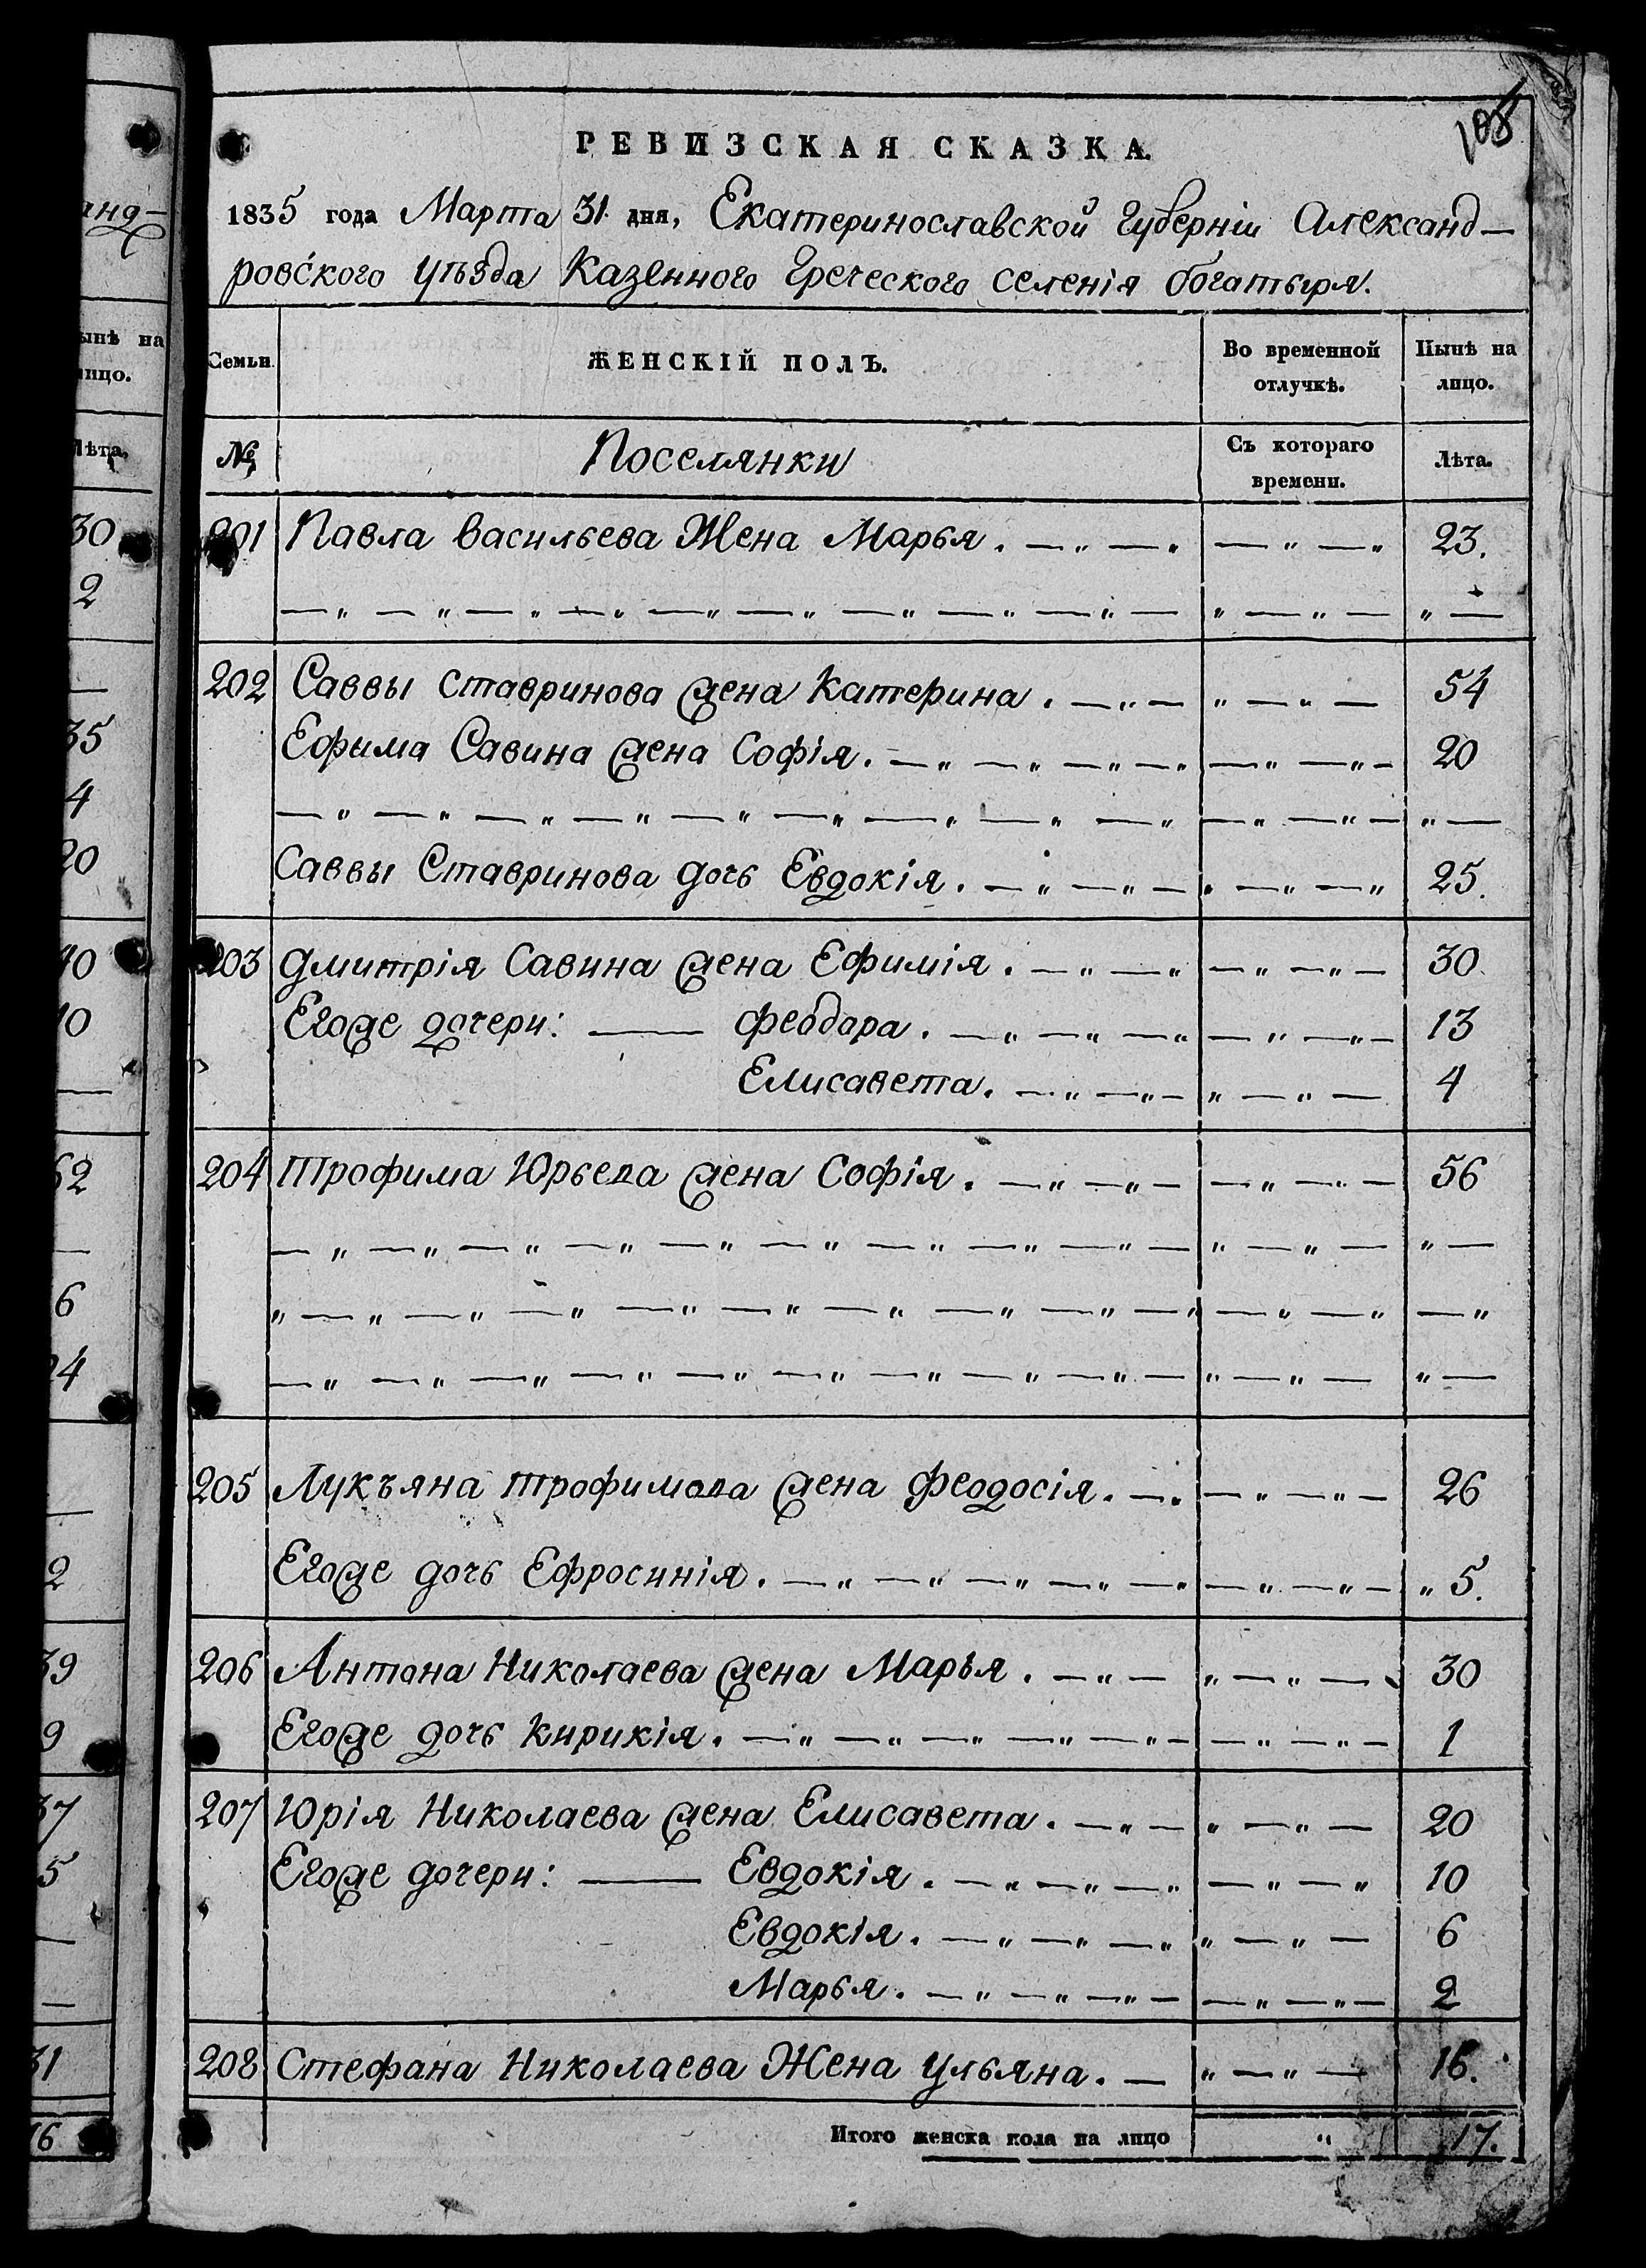 108
РЕВИЗСКАЯ СКАЗКА.
1835 года Марта 31 дня, Екатеринославской Губерніи Александ-
ровского уѣзда Казенного Греческого селенія богатыря.
Семьи. ЖЕНСКІЙ ПОЛЪ. Во временной отлучкѣ. Нынѣ на лицо.
№ Поселянки Съ котораго времени. Лѣта.
201 Павла Васильева Жена Марья. — „ — „ — „ — „ 23.
— „ — „ — „ — „ — „ — „ — „ — „ — „ — „ — „ — „ —
202 Саввы Ставринова жена Катерина. — „ — „ — „ — 54
Ефыма Савина жена Софія. — „ — „ — „ — „ — „ — „ — 20
— „ — „ — „ — „ — „ — „ — „ — „ — „ — „ — „ — „ —
Саввы Ставринова дочь Евдокія. — „ — „ — „ — „ — „ 25.
203 Дмитрія Савина жена Ефимія. — „ — „ — „ — „ — 30
Егоже дочери: — Феодора. — „ — „ — „ — „ — „ — 13
Елисавета. — „ — „ — „ — „ — 4
204 Трофима Юрьева жена Софія. — „ — „ — — „ — „ — 56
— „ — „ — „ — „ — „ — „ — „ — „ — „ — „ — „ — „ —
„ — „ — „ — „ — „ — „ — „ — „ — „ — „ — „ — „ — „
— „ — „ — „ — „ — „ — „ — „ — „ — „ — „ — „ — „ —
205 Лукъяна Трофимова жена Феодосія. — „ — „ — „ — 26
Егоже дочь Ефросинія. — „ — „ — „ — „ — „ — „ — „ — „ 5.
206 Антона Николаева жена Марья. — „ — „ — „ — 30
Егоже дочь Кирикія. — „ — „ — „ — „ — „ — — „ — „ — 1
207 Юрія Николаева жена Елисавета. — „ — „ — „ — 20
Егоже дочери: — Евдокія. — „ — „ — „ — „ — „ 10
Евдокія. — „ — „ — „ „ — „ — 6
Марья. — „ — „ — „ — — „ — „ — 2
208 Стефана Николаева Жена Ульяна. — „ — „ — 16.
Итого женска пола на лицо „ 17.